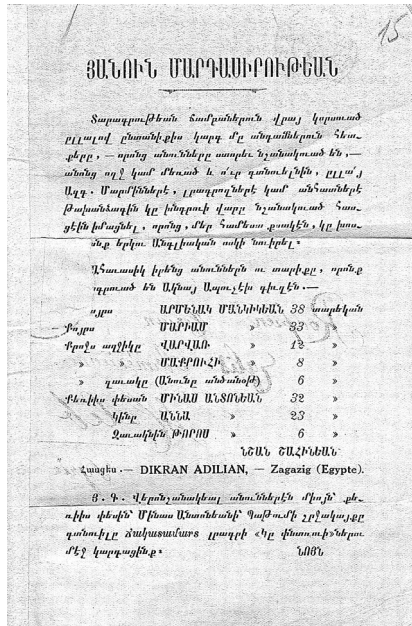 15
ՅԱՆՈՒՆ ՄԱՐԴԱՍԻՐՈՒԹԵԱՆ
Տարագրութեան ճամբաներուն վրայ կորսուած
ըլլալով ընտանիքիս կարգ մը անդամներուն հետ-
քերը, — որոնց անունները ստորեւ նշանակուած են, —
անոնց ողջ կամ մեռած և ո՛ւր գտնուելնին, ըլլա՛յ
Ազգ. Մարմիններէ, լրագրողներէ կամ անհատներէ
Թախանձագին կը խնդրուի վարը նշանակուած հաս-
ցէին իմացնել, որոնց, մեր համեստ քսակէն, կը խոս-
անք երկու Անգլիական ոսկի նուիրել։
Ահաւասիկ իրենց անուններն ու տարիքը, որոնք
գրուած են Ակնայ Ապուչէխ գիւղէն.—
այրս ԱՐՄԵՆԱԿ ՄԱՆԿԻԿԵԱՆ 38 տարեկան
Քոյրս ՄԱՐԻԱՄ » 33 »
Քրոջս աղջիկը ՎԱՐՎԱՌ » 12 »
» » ՄԱՔՐՈՒՀԻ » 8 »
» զաւակը (Անունը անծանօթ) 6 »
Քեռիիս փեսան ՄԻՆԱՍ ԱՆՏՈՆԵԱՆ 32 »
կինը ԱՆՆԱ » 23 »
Զաւակնին ԹՈՐՈՍ » 6 »
ՆՇԱՆ ՇԱՀԻՆԵԱՆ
Հասցես.— DIKRAN ADILIAN, — Zagazig (Egypte).
Յ. Գ. Վերոնշանակեալ անուններէն միայն՝ քե-
ռիիս փեսին՝ Մինաս Անտոնեանի՝ Պաթումի շրջակայքը
գտնուիլը ճակատամարտ լրագրի «Կը փնտռուի»ներու
մէջ կարդացինք։ ՆՈՅՆ